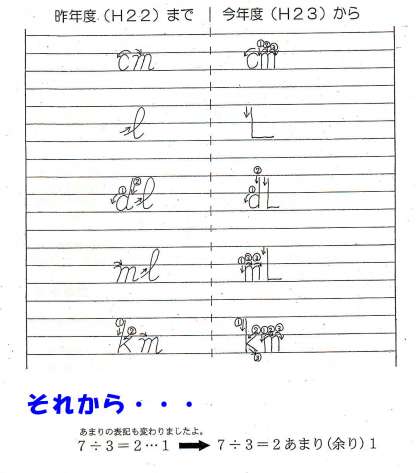 昨年度（H２２）まで｜今年度（H２３）から
cm cm
l L
dl dL
ml mL
km km
それから・・・
あまりの表記も変わりましたよ。
７÷３＝２…１ ➡ ７÷３＝２あまり(余り)１